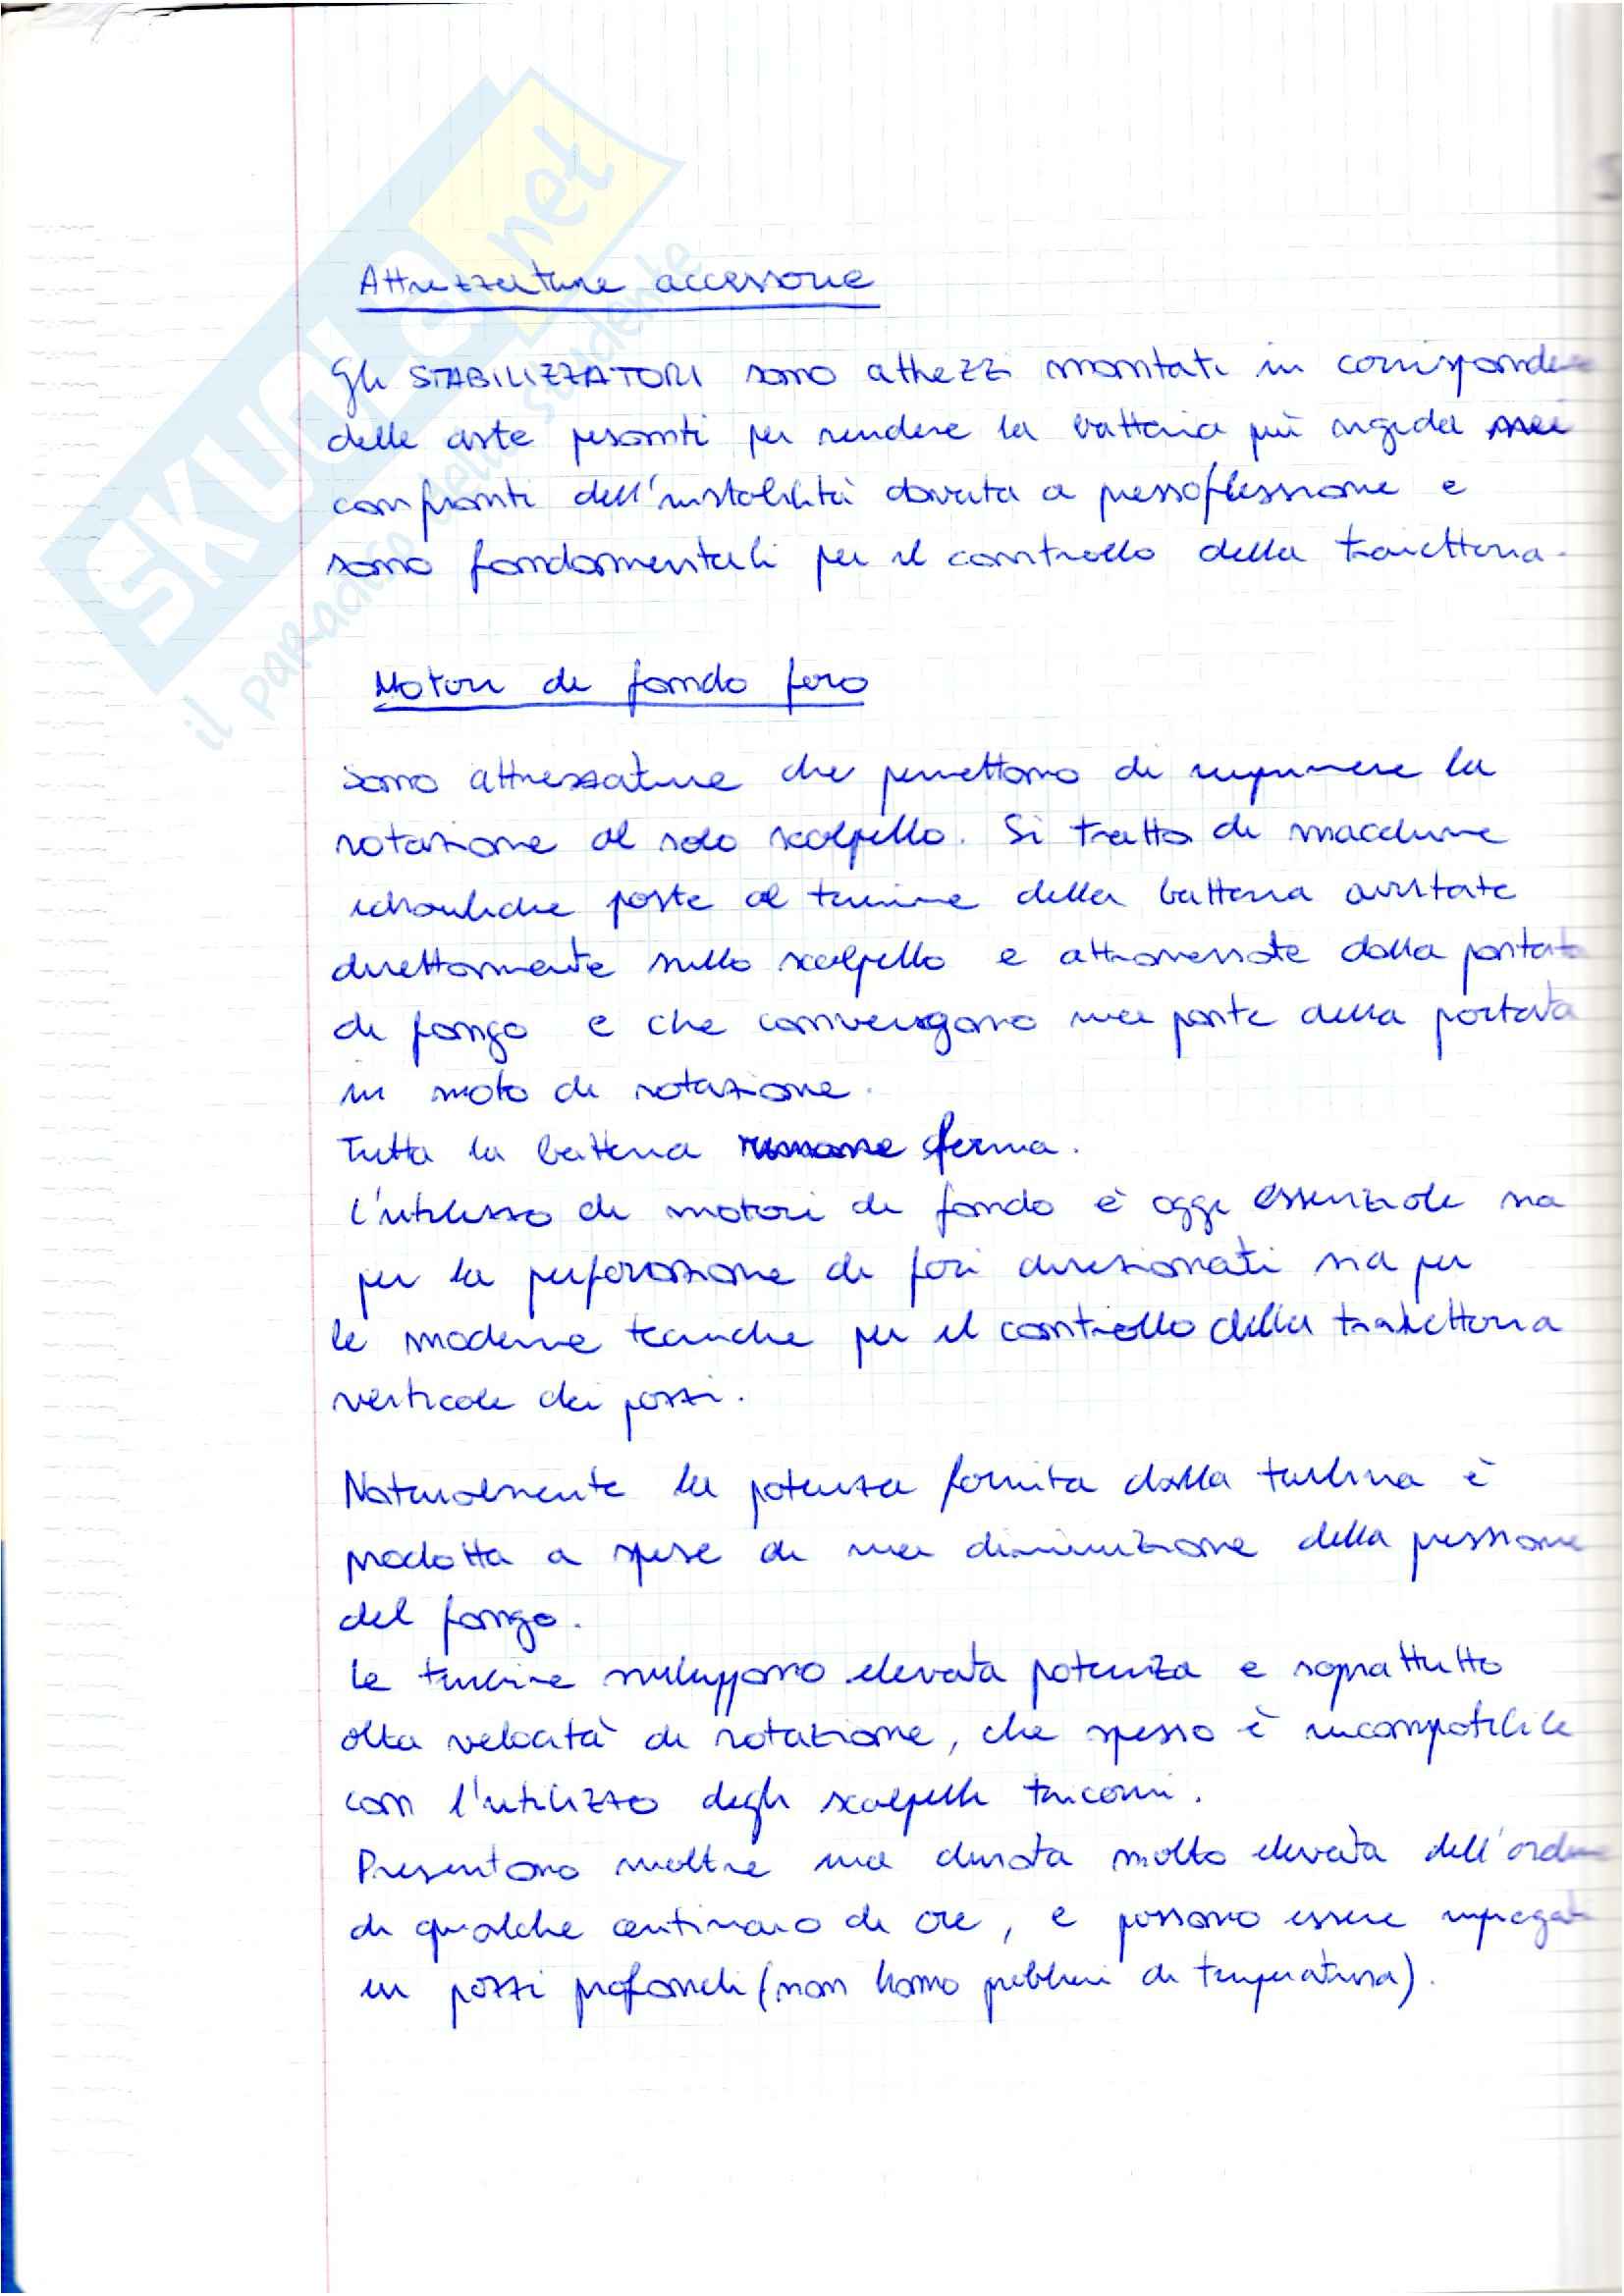 SKUOLA.net
il paradiso dello studente
Attrezzature accessorie
Gli STABILIZZATORI sono attrezzi montati in corrisponde
delle aste pesanti per rendere la batteria più rigida nei
confronti dell'instabilità dovuta a pressoflessione e
sono fondamentali per il controllo della traiettoria.
Motori di fondo foro
Sono attrezzature che permettono di imprimere la
rotazione al solo scalpello. Si tratta di macchine
idrauliche poste al termine della batteria avvitate
direttamente sullo scalpello e attraversate dalla portata
di fango e che convergono una parte della portata
in moto di rotazione.
Tutta la batteria rimane ferma.
L'utilizzo di motori di fondo è oggi essenziale sia
per la perforazione di fori direzionati sia per
le moderne tecniche per il controllo della traiettoria
verticale dei pozzi.
Naturalmente la potenza fornita dalla turbina è
prodotta a spese di una diminuzione della pressione
del fango.
Le turbine sviluppano elevata potenza e soprattutto
alta velocità di rotazione, che spesso è incompatibile
con l'utilizzo degli scalpelli triconi.
Presentano inoltre una durata molto elevata dell'ordine
di qualche centinaio di ore, e possono essere impiegati
in pozzi profondi (non hanno problemi di temperatura).